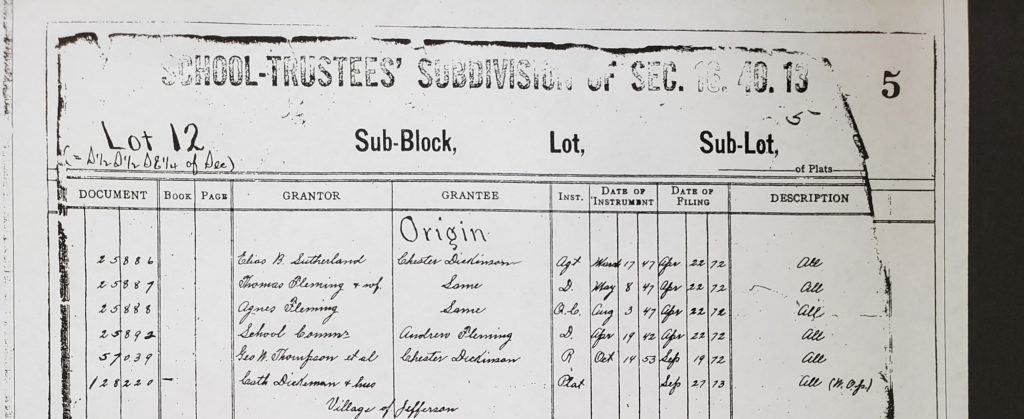 SCHOOL-TRUSTEES' SUBDIVISION OF SEC. 16. 40. 13
5
5
Lot 12 Sub-Block, Lot, Sub-Lot,
(= S½ S½ SE¼ of Sec)
of Plats
DOCUMENT BOOK PAGE GRANTOR GRANTEE INST. DATE OF INSTRUMENT DATE OF FILING DESCRIPTION
Origin
25886 Elias B. Sutherland Chester Dickinson Agt March 17 47 Apr 22 72 All
25887 Thomas Fleming & wf. Same D. May 8 47 Apr 22 72 All
25888 Agnes Fleming Same Q.C. Aug 3 47 Apr 22 72 All
25892 School Commr Andrew Fleming D. Apr 19 42 Apr 22 72 All
57039 Geo W. Thompson et al Chester Dickinson R Oct 14 53 Sep 19 72 All
128220 — Cath Dickman & hus Plat Sep 27 73 All
Village of Jefferson